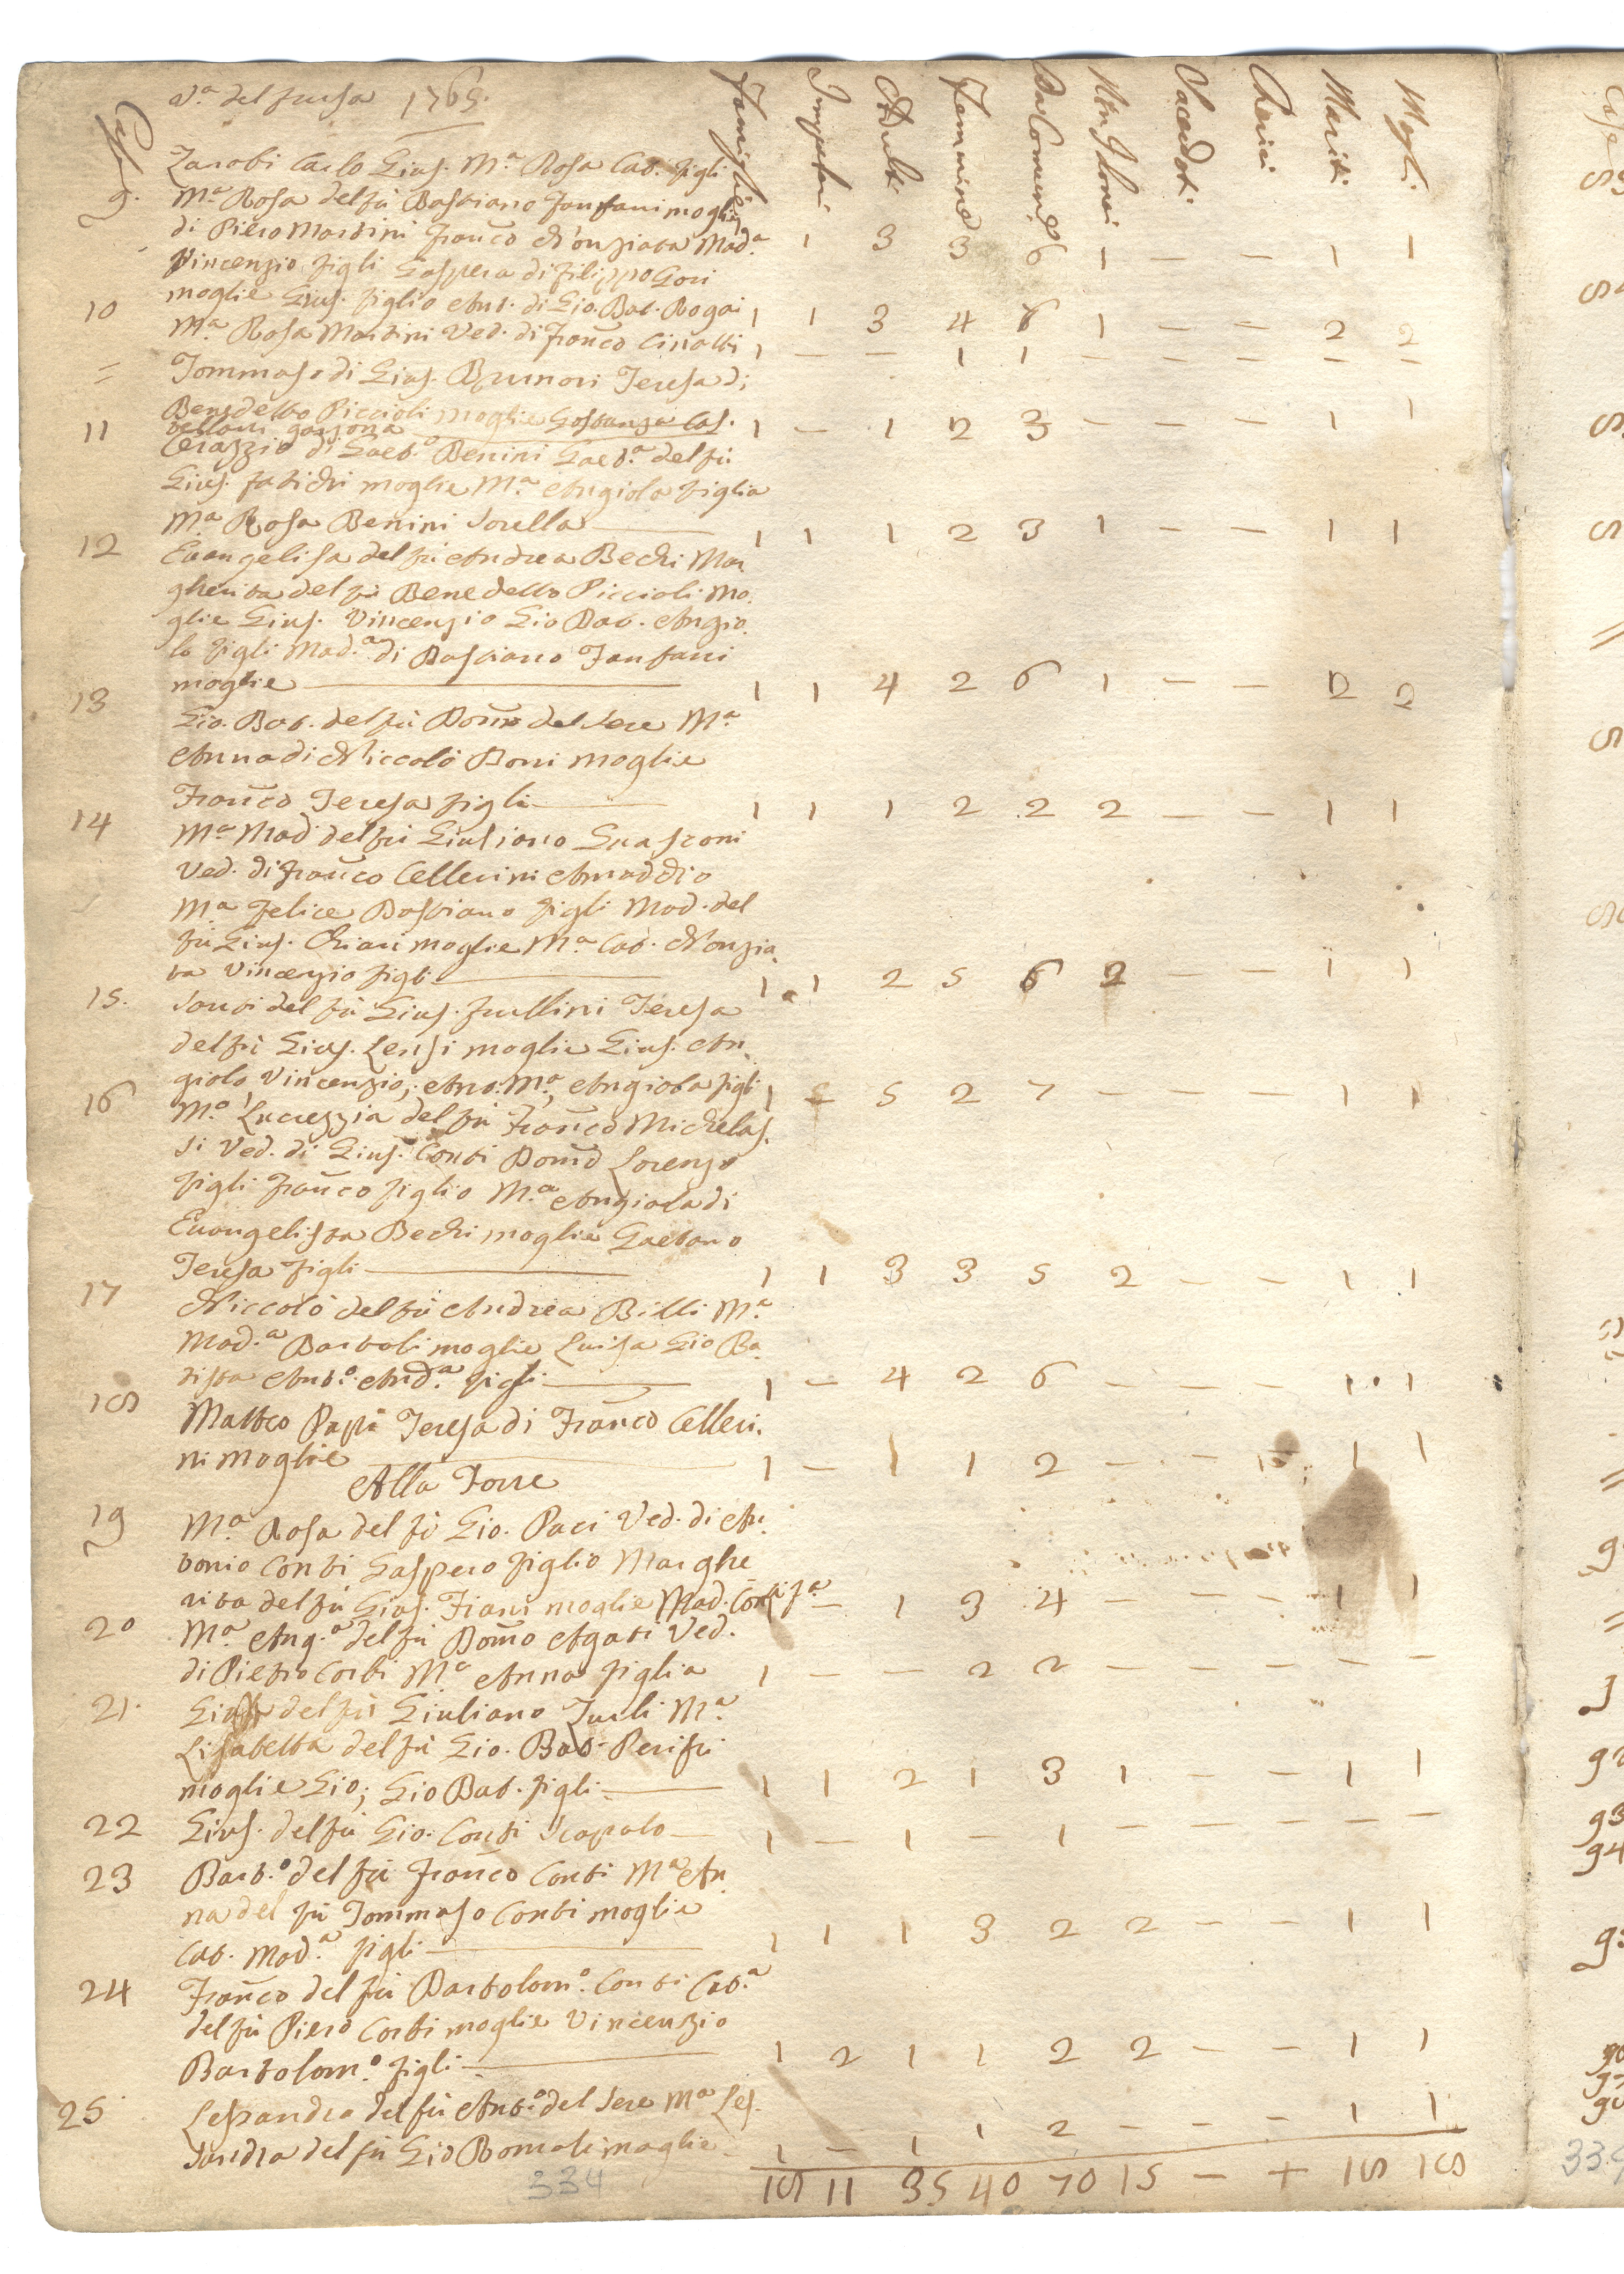 1769.
Case Famiglie Impuberi Adulti Femmine Da Comun. Non Idonei Sacerdot. Cherici Mariti Mogli
Jacobi Carlo Gius. M.a Rosa Cat. figli
9. M.a Rosa del fù Bastiano Fanfani moglie
di Piero Martini Franco Nunziata Mad.a 1 3 3 6 1 — — 1 1
Vincenzio figli Gaspera di Filippo Gori
10 moglie Gius. figlio Ant. di Gio. Bat. Bogai 1 1 3 4 6 1 — — 2 2
M.a Rosa Martini Ved. di Franco 1 — — 1 1 — — — — —
= Tommaso di Gius. Brunori Teresa di
Benedetto Piccioli moglie Gostanza Cas.
11 garzona 1 — 1 2 3 — — — 1 1
di Gaet.o Benini Gaet.a del fù
Gius. moglie M.a Angiola figlia
M.a Rosa Benini Sorella 1 1 1 2 3 1 — — 1 1
12 Evangelista del fù Andrea Bechi Mar
gherita del fù Benedetto Piccioli mo.
glie Gius. Vincenzio Gio Bat. Angio.
lo figli Mad.a di Bastiano Fanfani
moglie 1 1 4 2 6 1 — — 2 2
13
Gio. Bat. del fù Dom.o del Sere M.a
Anna di Niccolò Boni moglie
Franco Teresa figli 1 1 1 2 2 2 — — 1 1
14 M.a Mad. del fù Giuliano Guasconi
Ved. di Franco Cellerini Amaddio
M.a Felice Bastiano figli Mad. del
fù Gius. Chiari moglie M.a Cat. Nunzia.
ta Vincenzio figli 1 1 2 5 6 2 — — 1 1
15. Santi del fù Gius. Frullini Teresa
del fù Gius. Lensi moglie Gius. An.
giolo, Vincenzio; Ant. M.a, Angiola figli 1 2 5 2 7 — — — 1 1
16 M.a Lucrezzia del fù Franco Michelas.
si Ved. di Gius. Conti Dom.o Lorenzo
figli Franco figlio M.a Angiola di
Evangelista Bechi moglie Gaetano
Teresa figli 1 1 3 3 5 2 — — 1 1
17 Niccolò del fù Andrea Billi M.a
Mad.a Bartoli moglie Luisa Gio Ba.
tista Ant.o And.a figli 1 — 4 2 6 — — — 1 1
18 Matteo Papi Teresa di Franco Celleri.
ni moglie 1 — 1 1 2 — — — 1 1
Alla Torre
19 M.a Rosa del fù Gio. Paci Ved. di An.
tonio Conti Gaspero figlio Marghe
rita del fù Gius. Fiani moglie Mad. Conti f.a — 1 3 4 — — — 1 1
20 M.a Ang.a del fù Dom.o Agati Ved.
di Pietro Corti M.a Anna figlia 1 — — 2 2 — — — — —
21. del fù Giuliano M.a
Lisabetta del fù Gio. Bat.
moglie Gio; Gio Bat. figli 1 1 2 1 3 1 — — 1 1
22 Gius. del fù Gio. Conti Scapolo 1 — 1 — 1 — — — — —
23 Bart.o del fù Franco Conti M.a An
na del fù Tommaso Conti moglie
Cat. Mad.a figli 1 1 1 3 2 2 — — 1 1
24 Franco del fù Bartolom.o Conti Cat.a
del fù Piero Corti moglie Vincenzio
Bartolom.o figli 1 2 1 1 2 2 — — 1 1
25 Lesandro del fù Ant.o del Sere M.a Les.
sandra del fù Gio moglie 1 — 1 1 2 — — — 1 1
18 11 35 40 70 15 — + 18 18
334